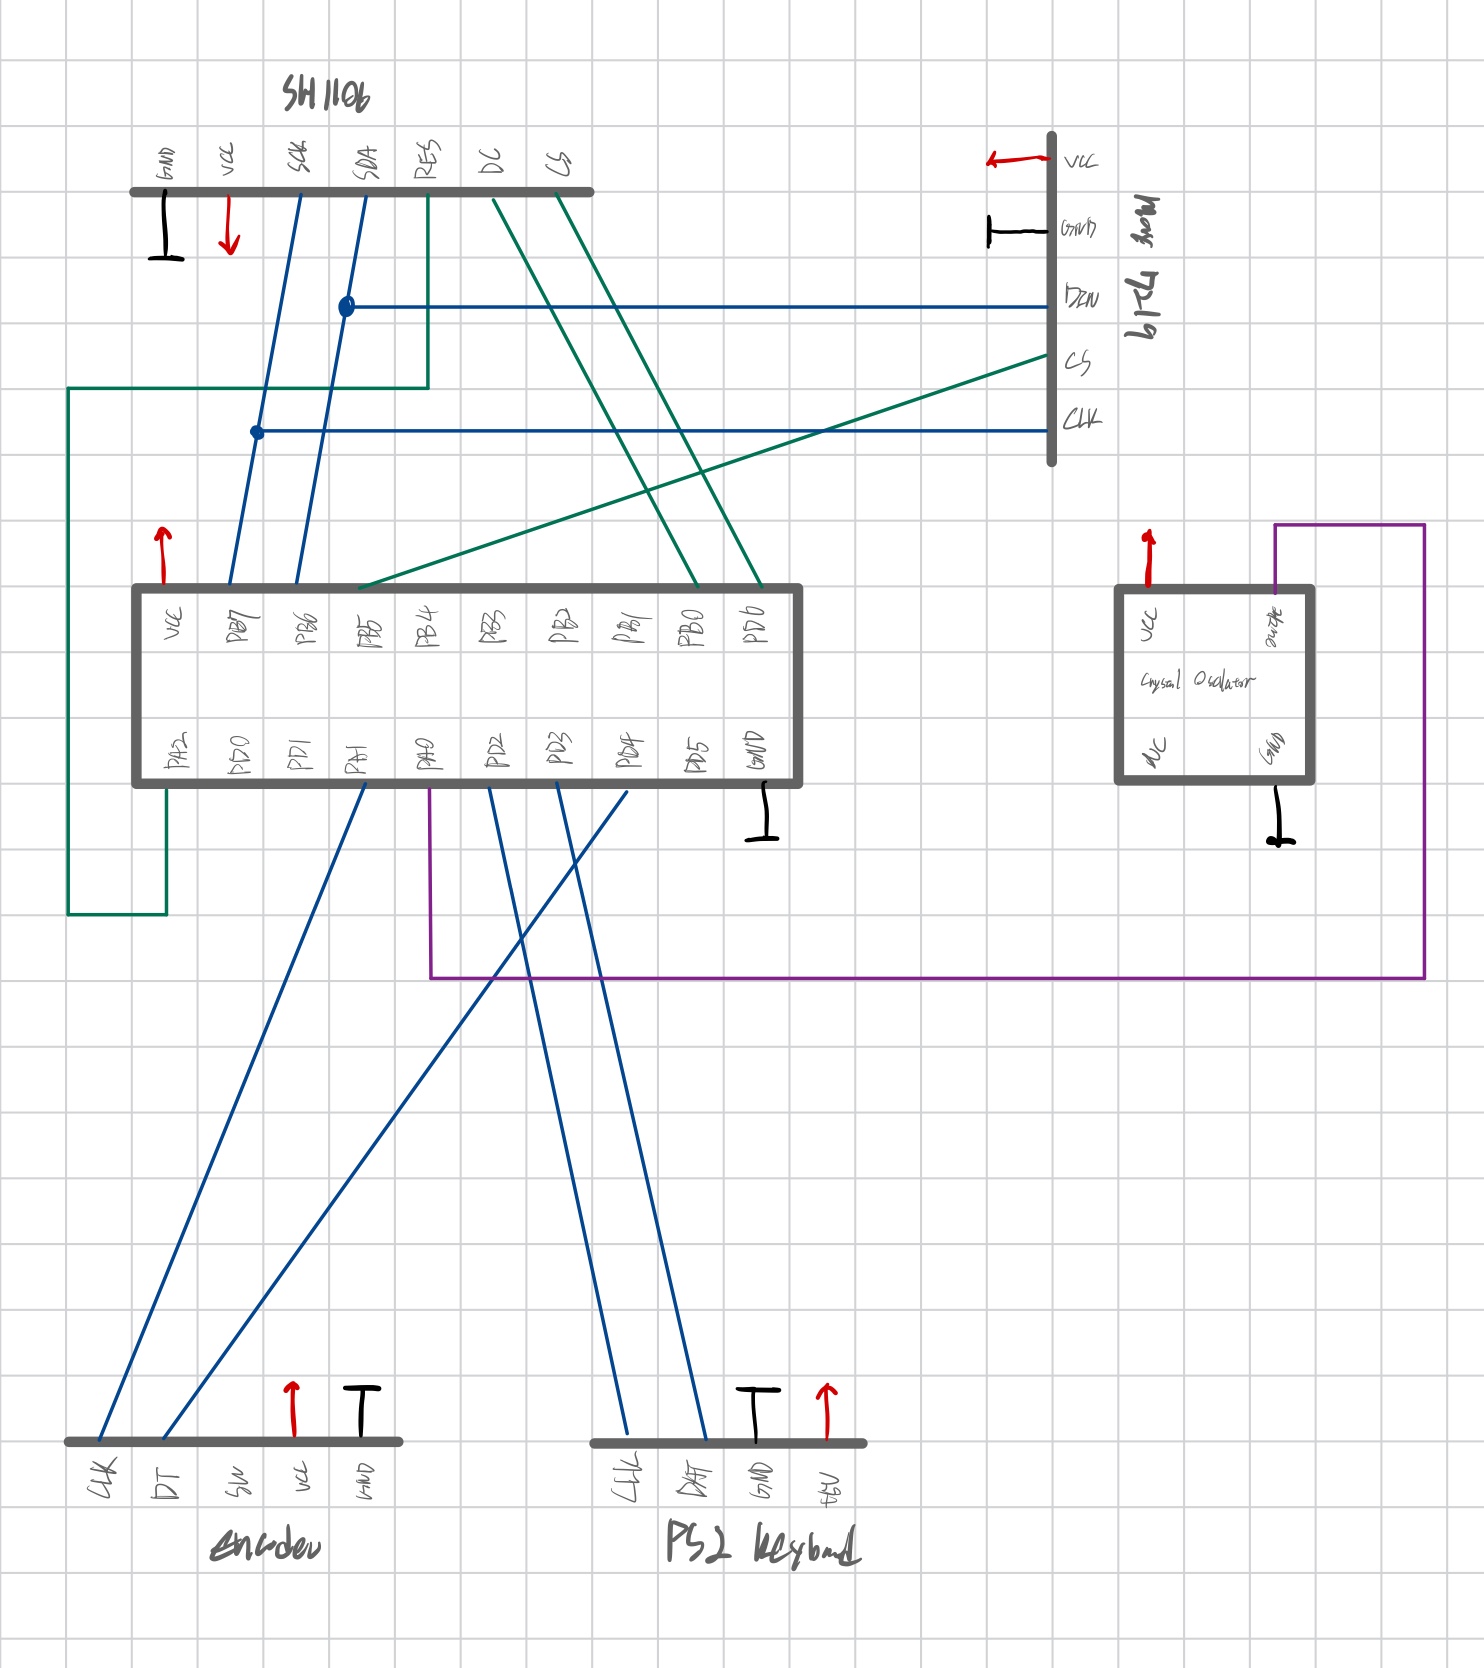 SH1106
GND VCC SCK SDA RES DC CS
VCC
GND
DIN
CS
CLK
MAX 7219
VCC PB7 PB6 PB5 PB4 PB3 PB2 PB1 PB0 PD6
PA2 PD0 PD1 PA1 PA0 PD2 PD3 PD4 PD5 GND
VCC
Crystal
NC GND
CLK DT SW VCC GND
Encoder
CLK DAT GND +5V
PS2 Keyboard